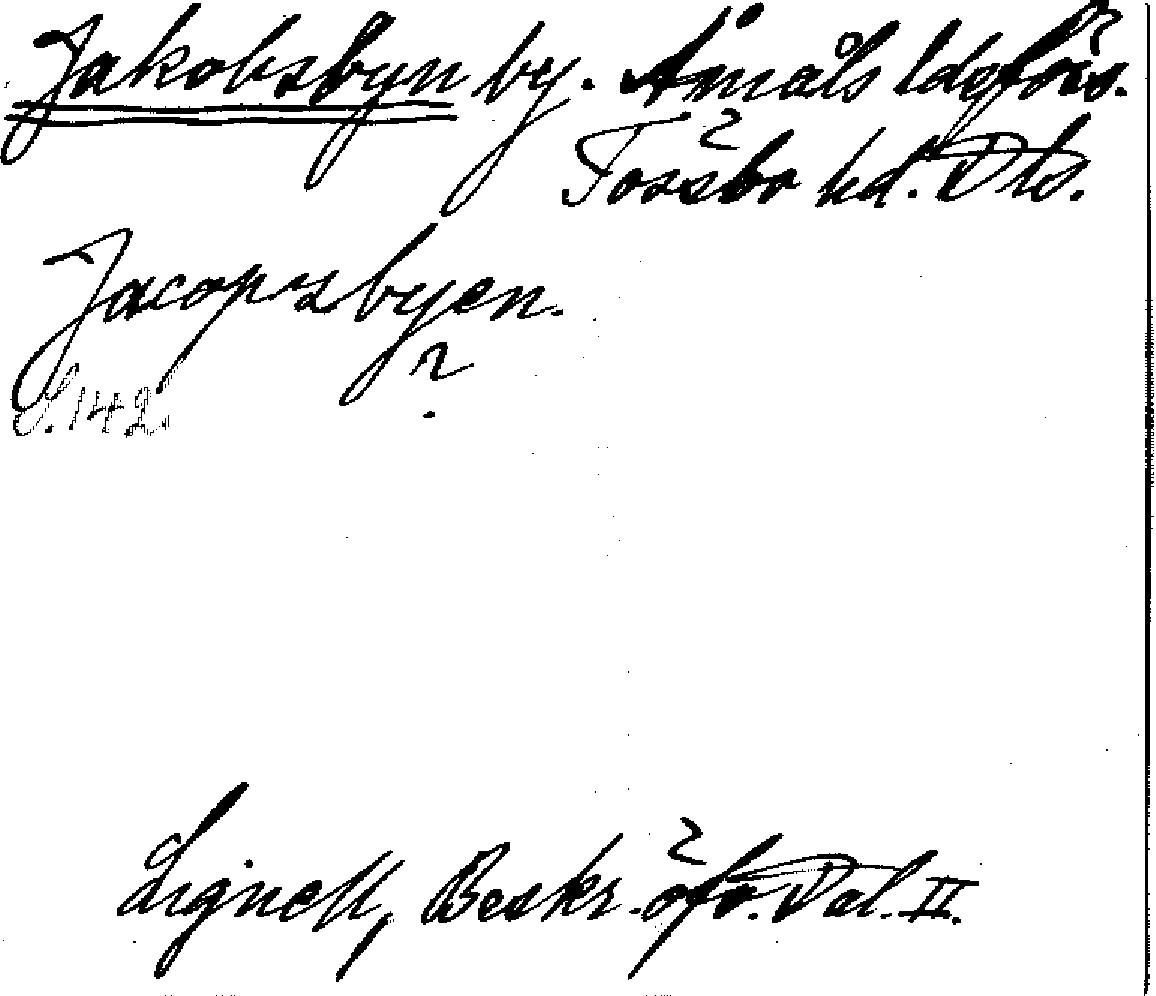 Jakobsbyn by. Åmåls ldsförs.
Tössbo hd. Dls.
Jacopsbyen.
?
S. 142.
Lignell, Beskr. öfv. Dal. II.